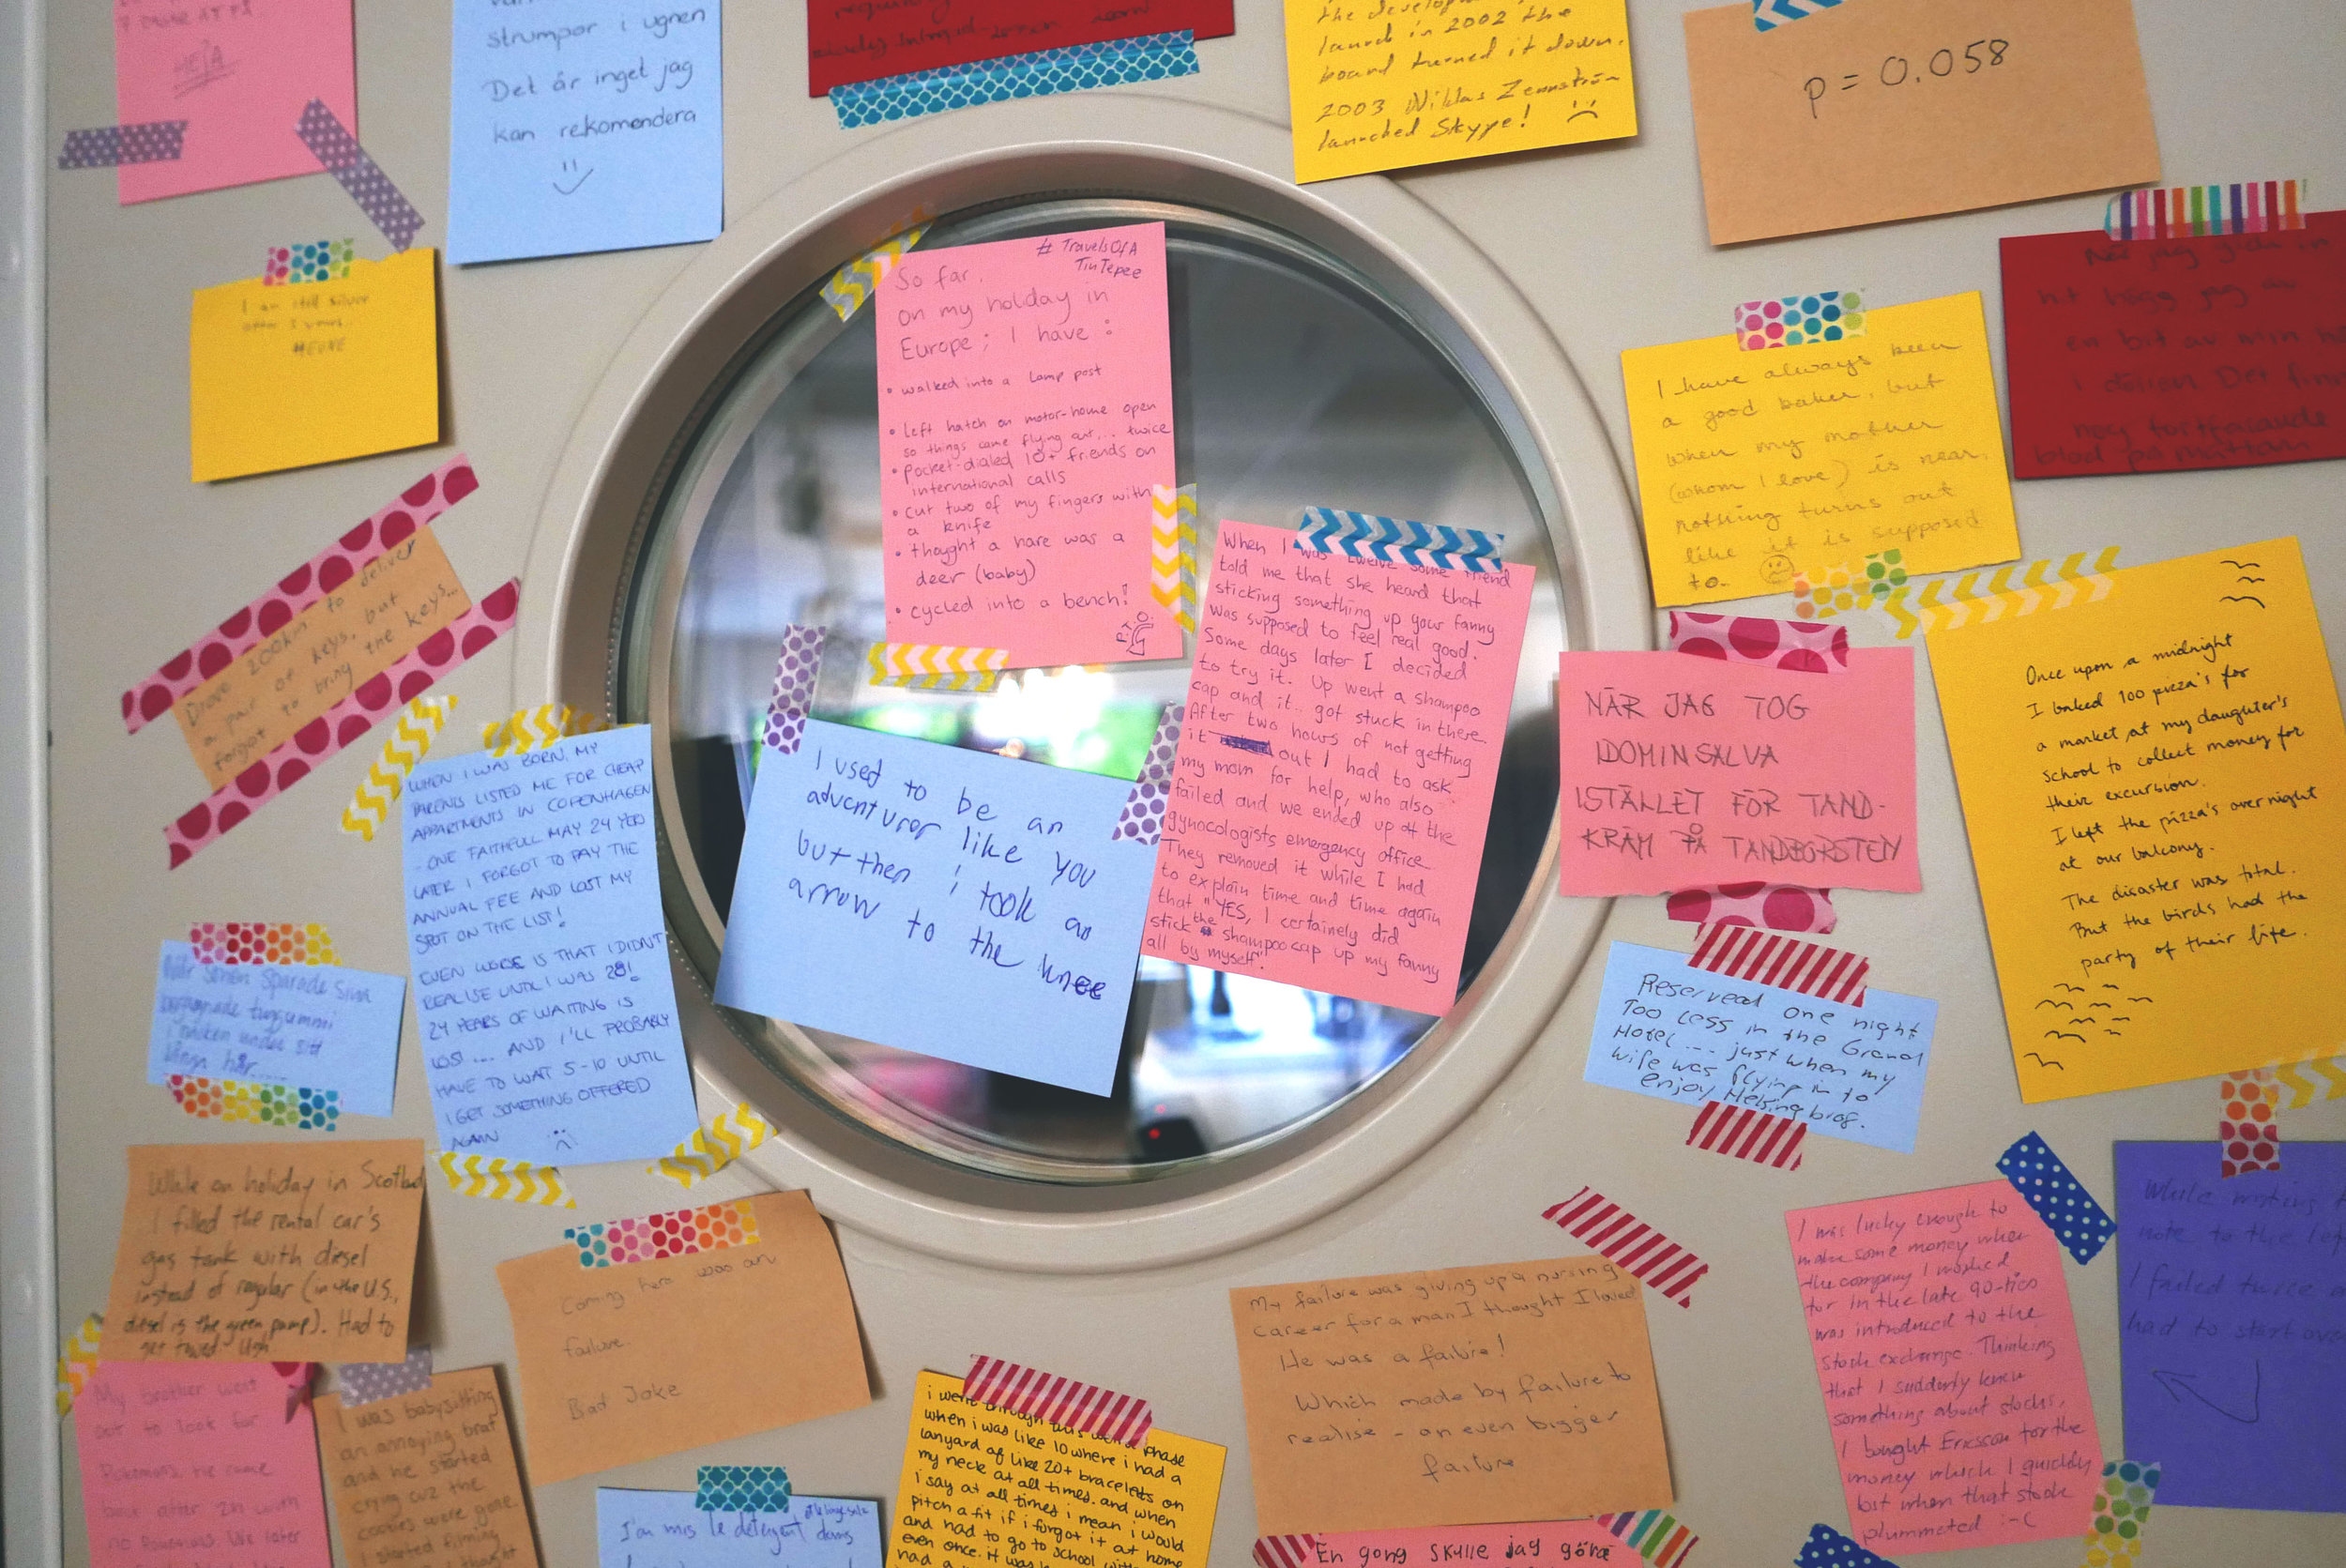 HEJA
strumpor i ugnen
Det är inget jag
kan rekomendera
the develop
launch in 2002 the
board turned it down.
2003 Niklas Zennström
launched Skype!
p = 0.058
I am still silver
after 3 years.
# TravelsOfA
TinTepee
So far.
on my holiday in
Europe; I have :
• walked into a lamp post
• left hatch on motor-home open
so things came flying out... twice
• pocket-dialed 10+ friends on
international calls
• cut two of my fingers with
a knife
• thought a hare was a
deer (baby)
• cycled into a bench!
P.T.O.
I have always been
a good baker, but
when my mother
(whom I love) is near,
nothing turns out
like it is supposed
to.
När jag
hit högg jag av
en bit av min
i dörren. Det finn
nog fortfarande
blod på mattan
Drove 200km to deliver
a pair of keys, but
forgot to bring the keys...
When I was twelve some friend
told me that she heard that
sticking something up your fanny
was supposed to feel real good.
Some days later I decided
to try it. Up went a shampoo
cap and it.. got stuck in there.
After two hours of not getting
it out I had to ask
my mom for help, who also
failed and we ended up at the
gynocologists emergency office.
They removed it while I had
to explain time and time again
that "YES, I certainely did
stick the shampoocap up my fanny
all by myself".
NÄR JAG TOG
IDOMINSALVA
ISTÄLLET FÖR TAND-
KRÄM PÅ TANDBORSTEN
Once upon a midnight
I baked 100 pizza's for
a market at my daugter's
school to collect money for
their excursion.
I left the pizza's overnight
at our balcony.
The disaster was total.
But the birds had the
party of their life.
WHEN I WAS BORN, MY
PARENTS LISTED ME FOR CHEAP
APPARTMENTS IN COPENHAGEN
- ONE FAITHFULL MAY 24 YEO
LATER I FORGOT TO PAY THE
ANNUAL FEE AND LOST MY
SPOT ON THE LIST!
EVEN WORSE IS THAT I DIDN'T
REALISE UNTIL I WAS 28!
24 YEARS OF WAITING IS
LOST ... AND I'LL PROBABLY
HAVE TO WAIT 5-10 UNTIL
I GET SOMETHING OFFERED
AGAIN
I used to be an
adventurer like you
but then i took an
arrow to the knee
När sonen sparade sina
tuggummi
i nacken under sitt
långa hår.....
Reserved one night
Too less in the Grand
Hotel ... just when my
wife was flying in to
enjoy Helsingborg.
While on holiday in Scotland,
I filled the rental car's
gas tank with diesel
instead of regular (in the U.S.,
diesel is the green pump). Had to
get towed. Ugh.
Coming here was an
failure.
Bad Joke
My failure was giving up a nursing
career for a man I thought I loved
He was a failure!
Which made by failure to
realise - an even bigger
failure
I was lucky enough to
make some money when
the company I worked
for in the late 90-ties
was introduced to the
stock exchange. Thinking
that I suddenly knew
something about stocks,
I bought Ericsson for the
money which I quickly
lost when that stock
plummeted :-(
While writing
note to the lef
I failed twice a
had to start ove
My brother went
out to look for
Pokemons. He came
back after 2h with
no Pokemons. We later
I was babysitting
an annoying brat
and he started
crying cuz the
cookies were gone.
I started filming
i went through this weird phase
when i was like 10 where i had a
lanyard of like 20+ bracelets on
my neck at all times. and when
i say at all times i mean i would
pitch a fit if i forgot it at home
and had to go to school with
even once. it was
had a
J'ai mis le détergent dans
En gong skulle jag göra